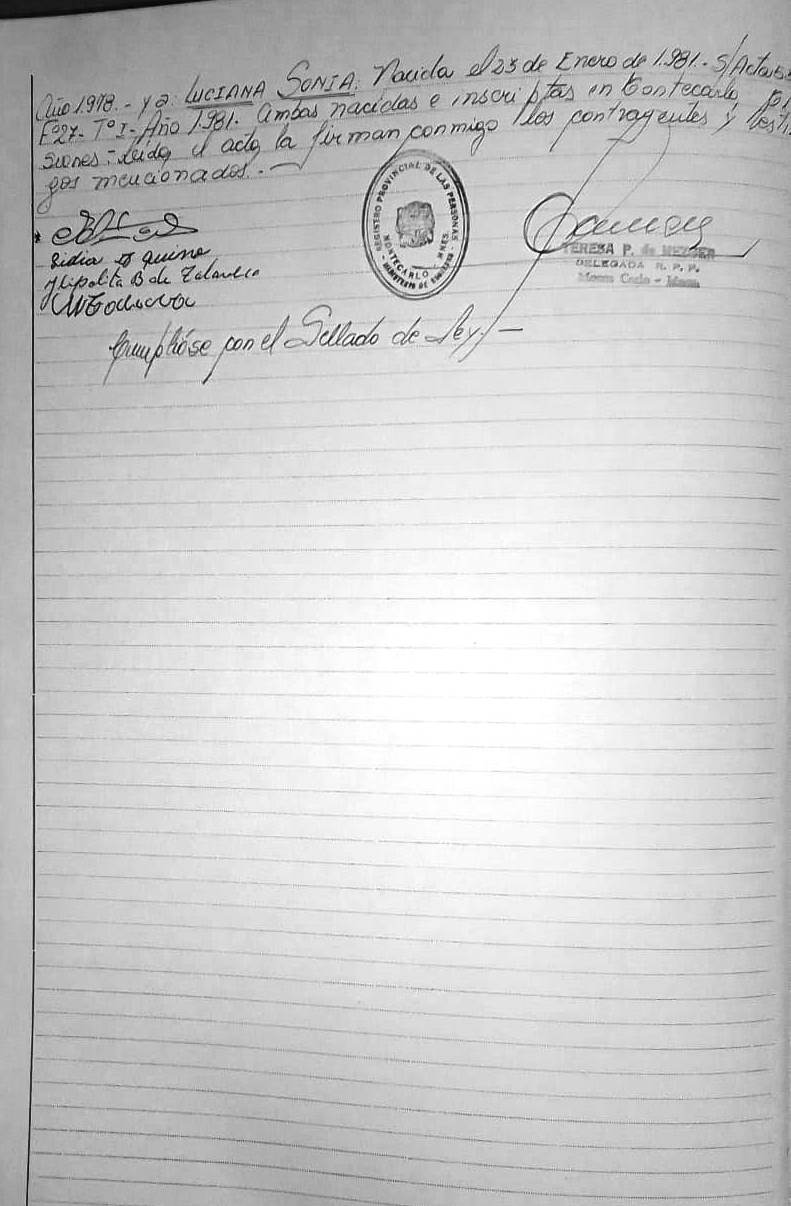 Año 1978.- y a: LUCIANA SONIA: Nacida el 23 de Enero de 1.981.- S/Acta 53
Fº27- TºI- Año 1.981. Ambas nacidas e inscriptas en Montecarlo,
siones: Leída el acta la firman conmigo los contrayentes y testi
gos mencionados.-
REGISTRO PROVINCIAL DE LAS PERSONAS
MONTECARLO - MNES.
MINISTERIO DE GOBIERNO
Lidia Aquino
Hipolita B de
TERESA P. de MEZGER
DELEGADA R. P. P.
Monte Carlo - Mnes.
Cumplióse con el Sellado de Ley.-